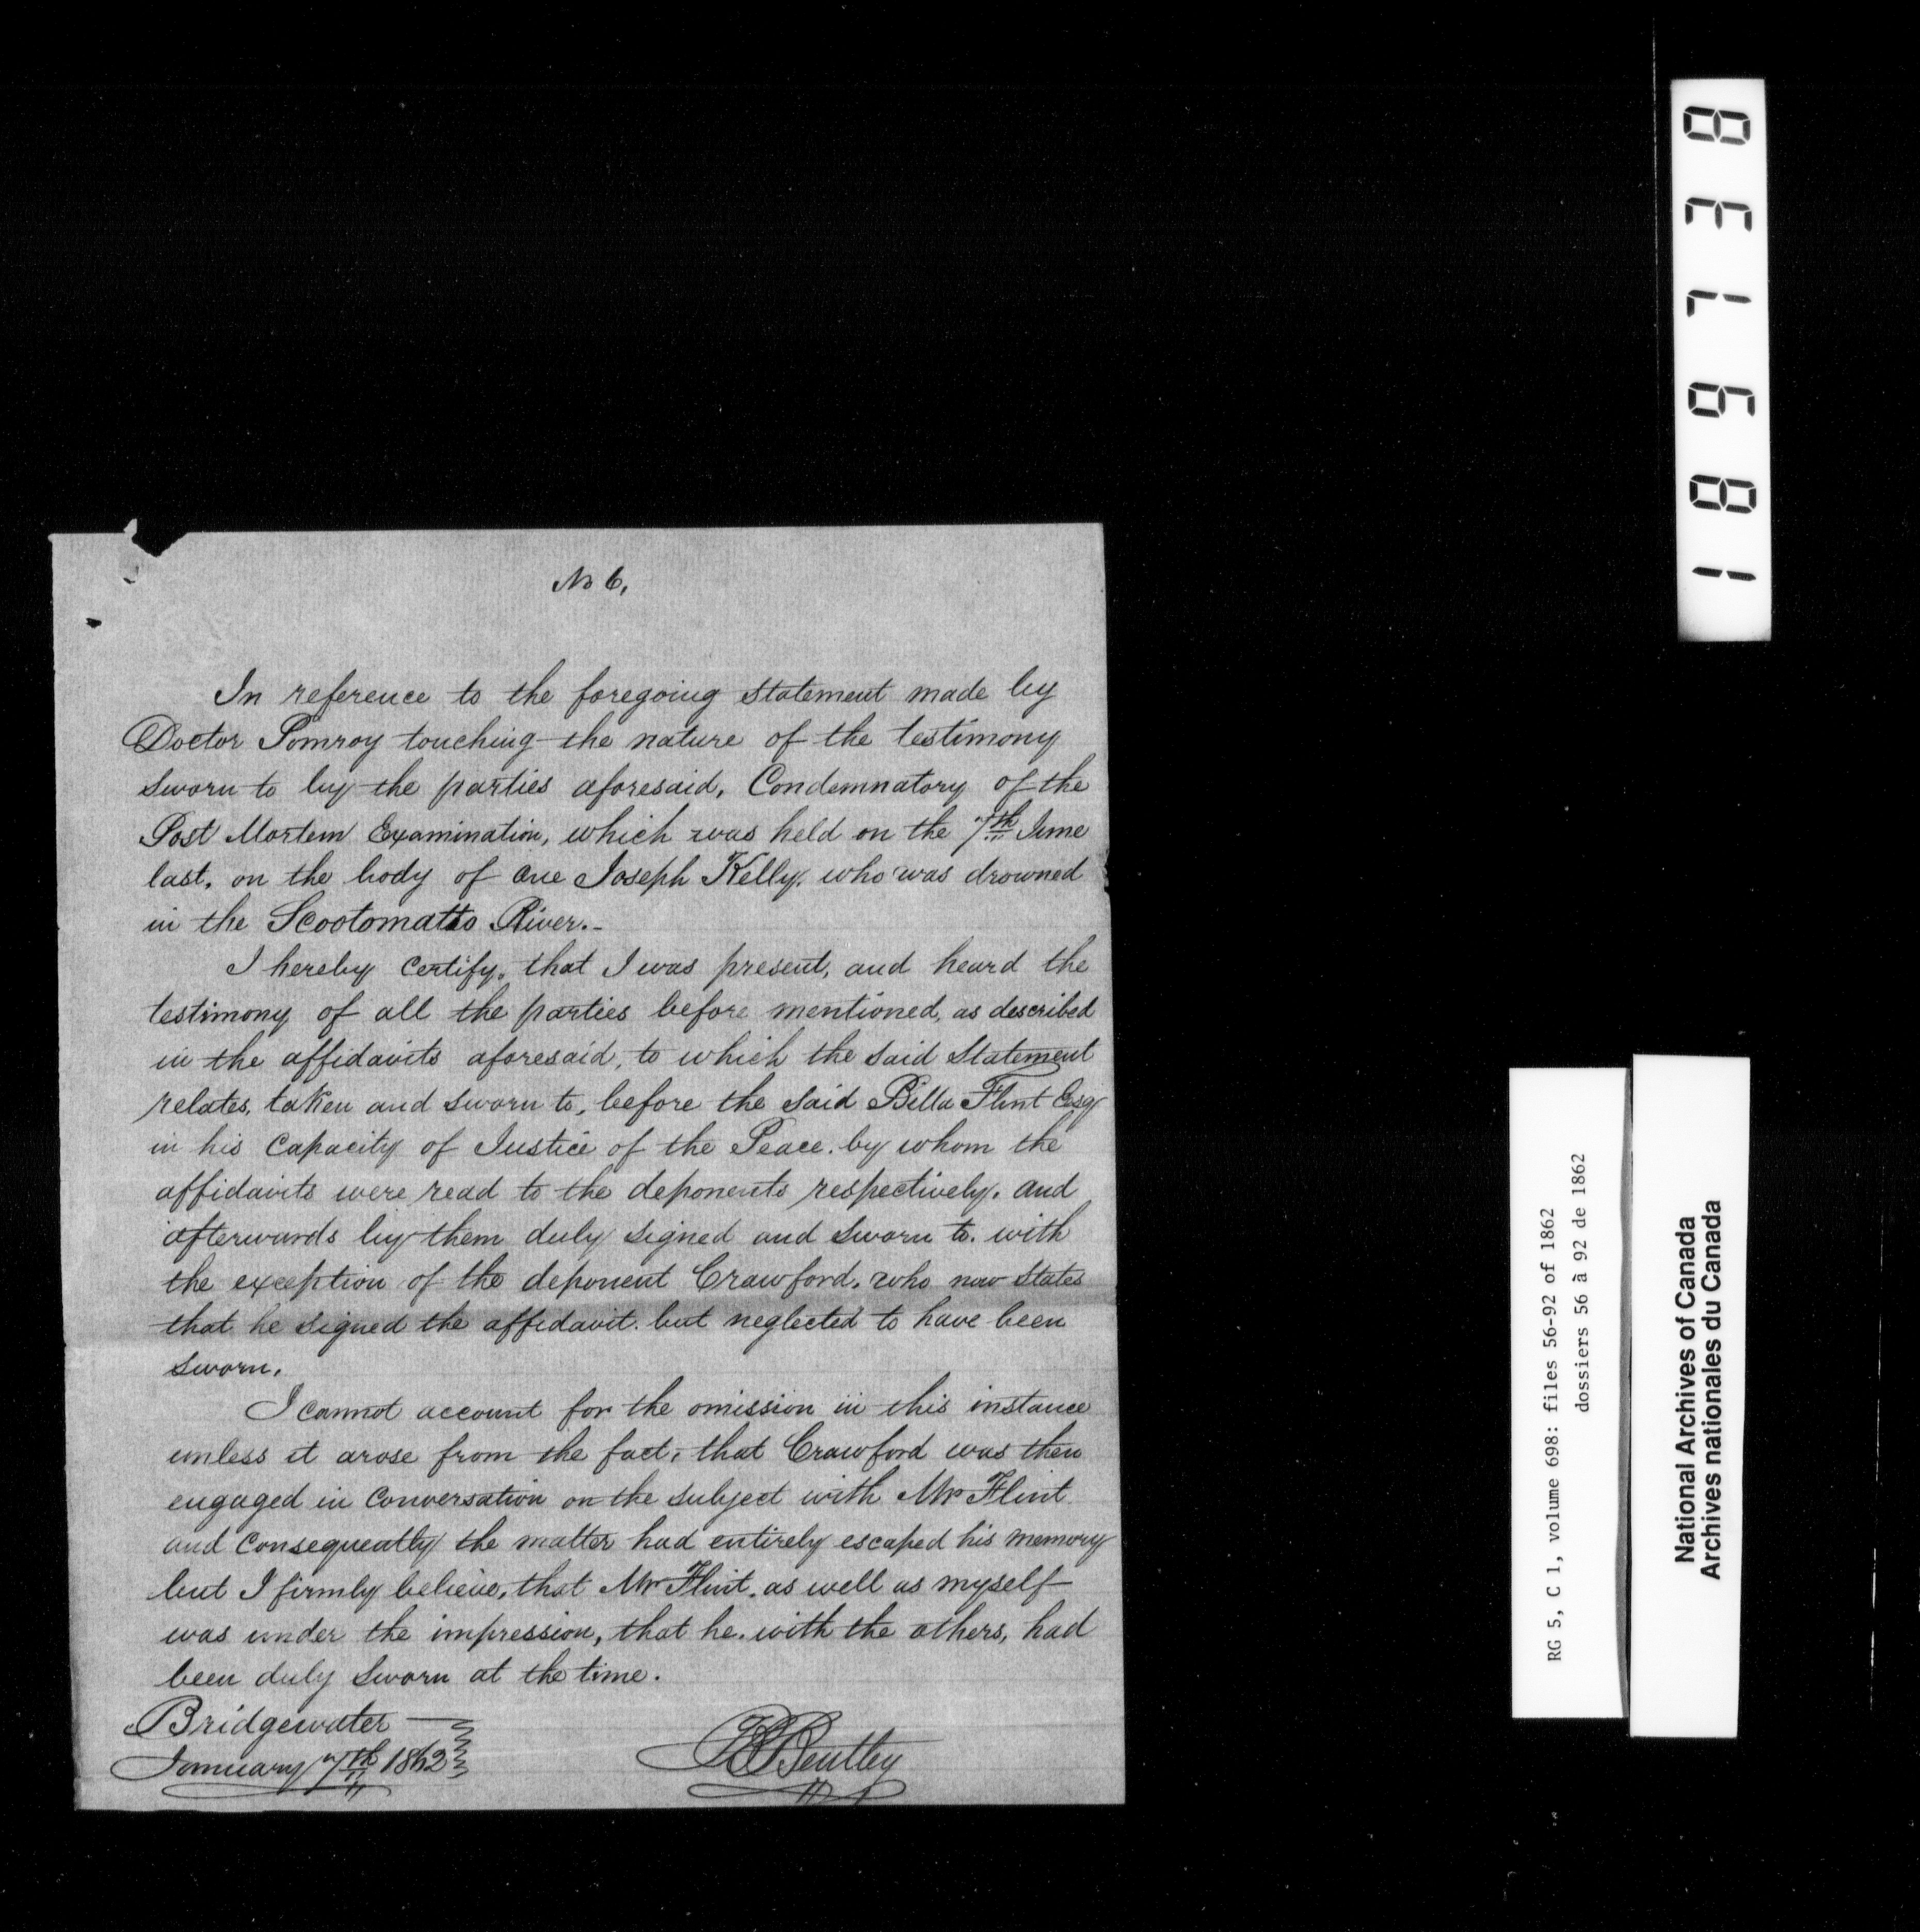 No 6,
In reference to the foregoing statement made by
Doctor Pomroy touching the nature of the testimony
sworn to by the parties aforesaid, Condemnatory of the
Post Mortem Examination, which was held on the 7th June
last, on the body of one Joseph Kelly, who was drowned
in the Scootomatto River.-
I hereby certify, that I was present, and heard the
testimony of all the parties before mentioned, as described
in the affidavits aforesaid, to which the said Statement
relates, taken and sworn to, before the said Billa Flint Esq
in his Capacity of Justice of the Peace. by whom the
affidavits were read to the deponents respectively, and
afterwards by them duly signed and sworn to. with
the exception of the deponent Crawford, who now states
that he signed the affidavit. but neglected to have been
sworn.
I cannot account for the omission in this instance
unless it arose from the fact, that Crawford was then
engaged in Conversation on the subject with Mr Flint
and Consequently the matter had entirely escaped his memory
but I firmly believe, that Mr Flint, as well as myself
was under the impression, that he. with the others, had
been duly sworn at the time.
Bridgewater
January 7th 1862
Bentley
189738
RG 5, C 1, volume 698: files 56-92 of 1862
dossiers 56 à 92 de 1862
National Archives of Canada
Archives nationales du Canada